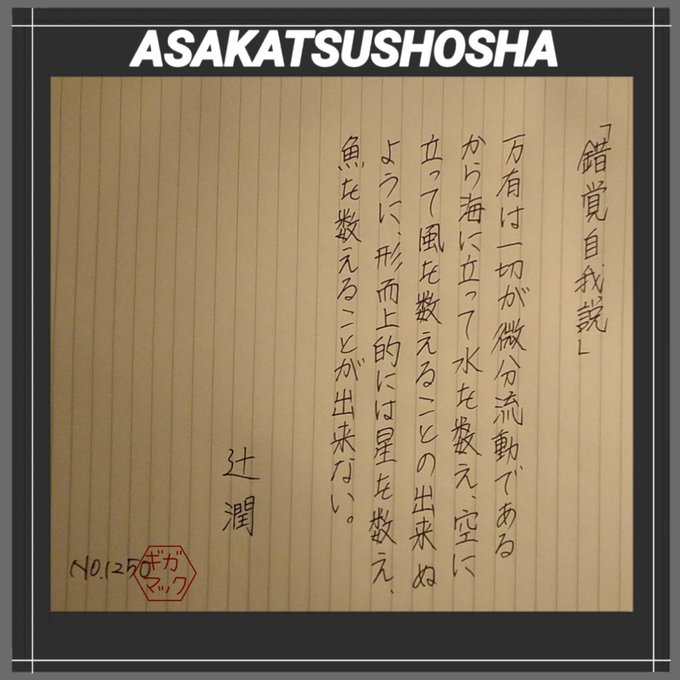 ASAKATSUSHOSHA
「錯覚自我説」
万有は一切が微分流動である
から海に立って水を数え、空に
立って風を数えることの出来ぬ
ように、形而上的には星を数え、
魚を数えることが出来ない。
辻潤
NO.1250
ギガ
マック